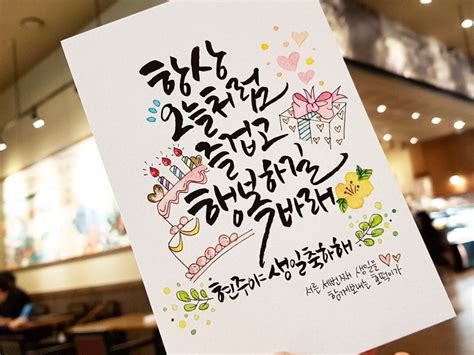 항상
오늘처럼
즐겁고
행복하길
바래
현주야 생일축하해
서른 세번째 생일을
함께보내는 효정이가